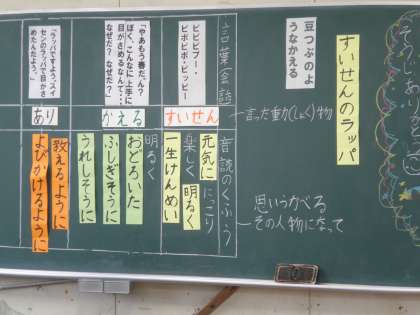 すいせんのラッパ
豆つぶのよ
うなかえる
言った動(しょく)物
思いうかべる
その人物になって
言葉(会話)
音読のくふう
ピピプー・
ピポピポ・ピッピー
すいせん
元気に
にっこり
楽しく
明るく
一生けんめい
「やあもう春だん?
ぼく、こんなに上手に
目がさめるなんて・・・
なぜだ?なぜだ?」
かえる
明るく
おどろいた
ふしぎそうに
うれしそうに
「ラッパですよう。スイ
センのラッパで目がさ
めたんだよう。」
あり
教えるように
よびかけるように